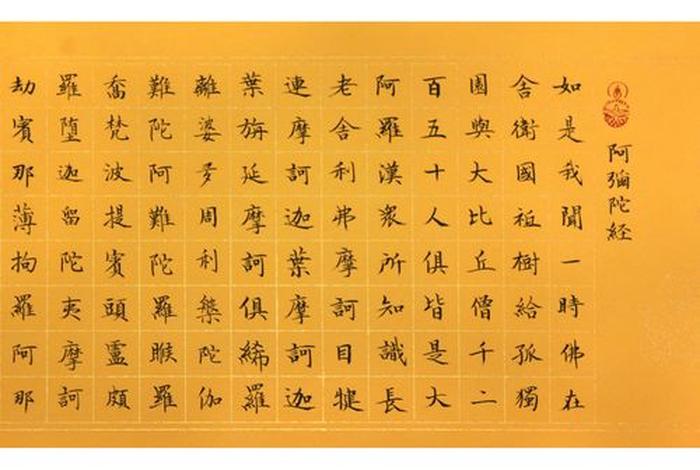 阿彌陀経
如是我聞一時佛在
舍衛國祗樹給孤獨
園與大比丘僧千二
百五十人俱皆是大
阿羅漢衆所知識長
老舍利弗摩訶目犍
連摩訶迦葉摩訶迦
葉旃延摩訶俱絺羅
離婆多周利槃陀伽
難陀阿難陀羅睺羅
喬梵波提賓頭盧頗
羅墮迦留陀夷摩訶
劫賓那薄拘羅阿那